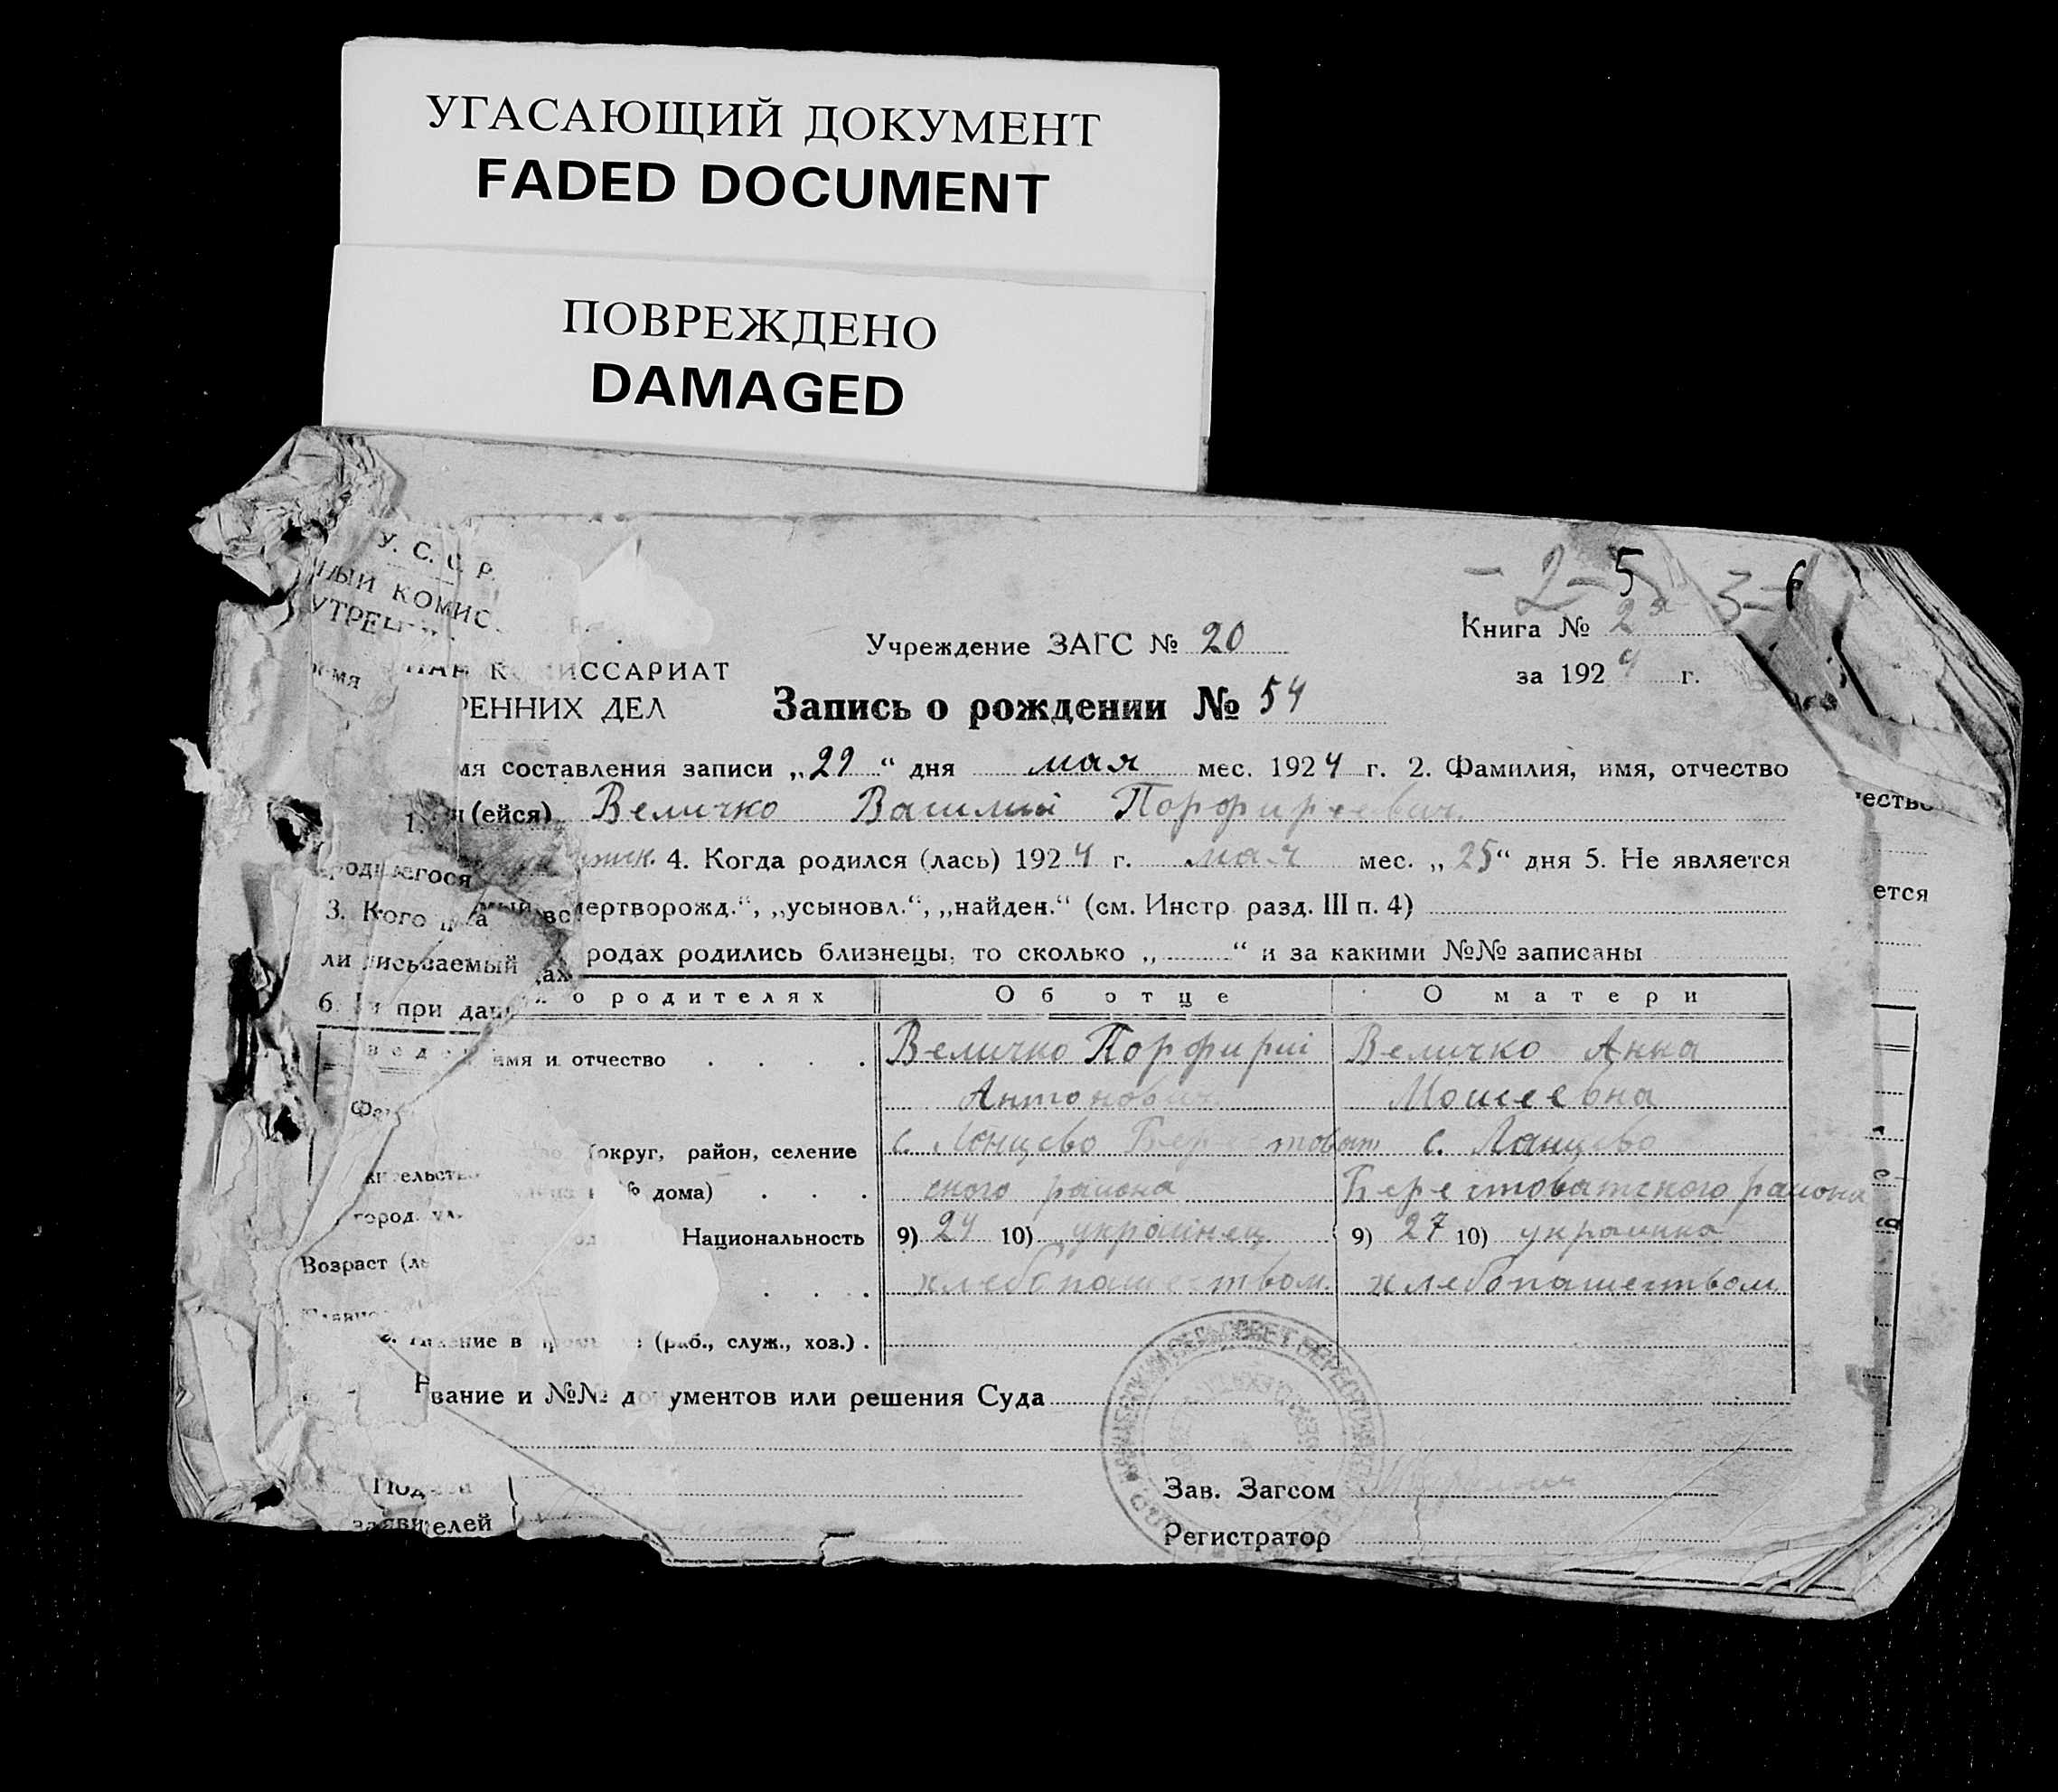 УГАСАЮЩИЙ ДОКУМЕНТ
FADED DOCUMENT
ПОВРЕЖДЕНО
DAMAGED
- 2 - 5 3 - 6
У. С. С. Р.
НЫЙ КОМИС
УТРЕНН
КОМИССАРИАТ
РЕННИХ ДЕЛ
Учреждение ЗАГС № 20
Книга № 2я
за 1924 г.
Запись о рождении № 54
мя составления записи „29“ дня мая мес. 1924 г. 2. Фамилия, имя, отчество
1.
родившегося (ейся) Величко Василий Порфиреевич
3. Кого 4. Когда родился (лась) 1924 г. мая мес. „25“ дня 5. Не является
ли мертворожд.“, „усыновл.“, „найден.“ (см. Инстр. разд. III п. 4)
6. при дан родах родились близнецы, то сколько „ “ и за какими №№ записаны
о родителях Об отце О матери
имя и отчество Величко Порфирий Величко Анна
Антонович Моисеевна
округ, район, селение с. Лонцево Берестоват с. Ланцево
город дома) ского района Берестоватского района
Возраст Национальность 9) 24 10) украинец 9) 27 10) украинка
хлебопашеством. хлебопашеством
(раб., служ., хоз.)
вание и №№ документов или решения Суда
Зав. Загсом
заявителей
Регистратор